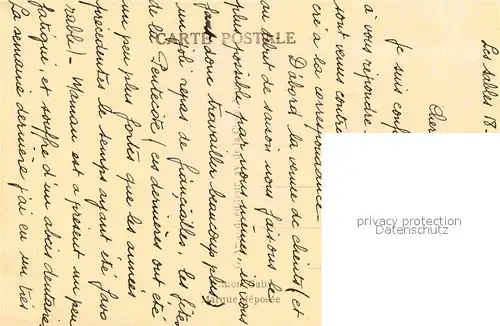 Les Sables 18-
Cher
Je suis conf
à vous répondre.
sont venus contre
cré à la correspondance
D'abord la venue de clients (et
au début de saison nous faisons le
plus possible par nous mêmes, il vous
faut donc travailler beaucoup plus)
un joli repas de fiançailles, les fêtes
de la Pentecôte (ces dernières ont été
un peu plus fortes que les années
précédentes le temps ayant été favo
rable) - Maman est à présent un peu
fatiguée, et souffre d'un abcès dentaire
La semaine dernière j'ai eu un très
CARTE POSTALE
Marque déposée
privacy protection
Datenschutz